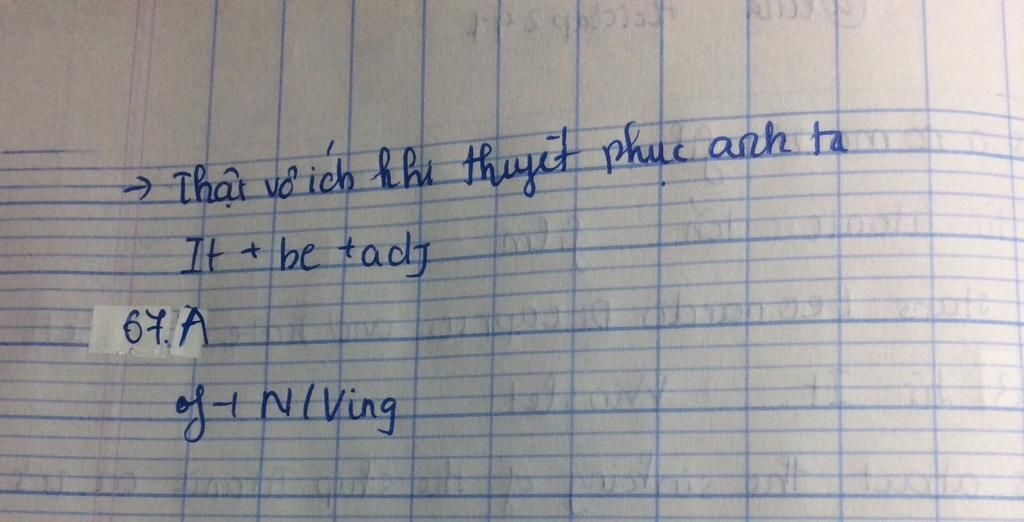 → Thật vô ích khi thuyết phục anh ta
It + be + adj
67. A
of + N/Ving